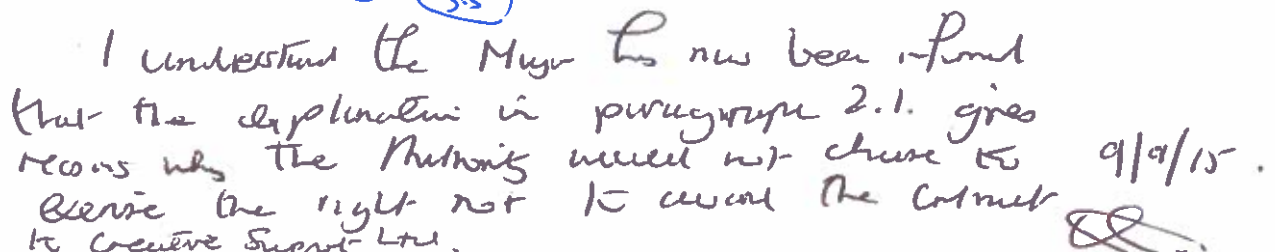 3.5
I understand the Mayor has now been informed
that the explanation in paragraph 2.1. gives
reasons why the Authority would not choose to 9/9/15.
exercise the right not to award the contract
to Creative Support Ltd.